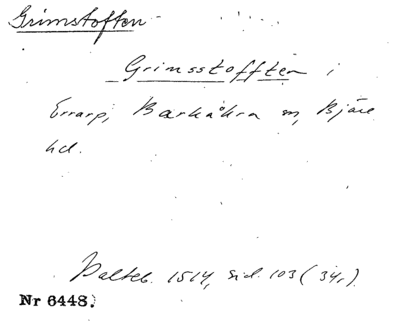 Grimstoften
Grimsstofften i
Errarp, Barkåkra sn, Bjäre
hd.
Palteb. 1514, sid. 103 (34r).
Nr 6448.